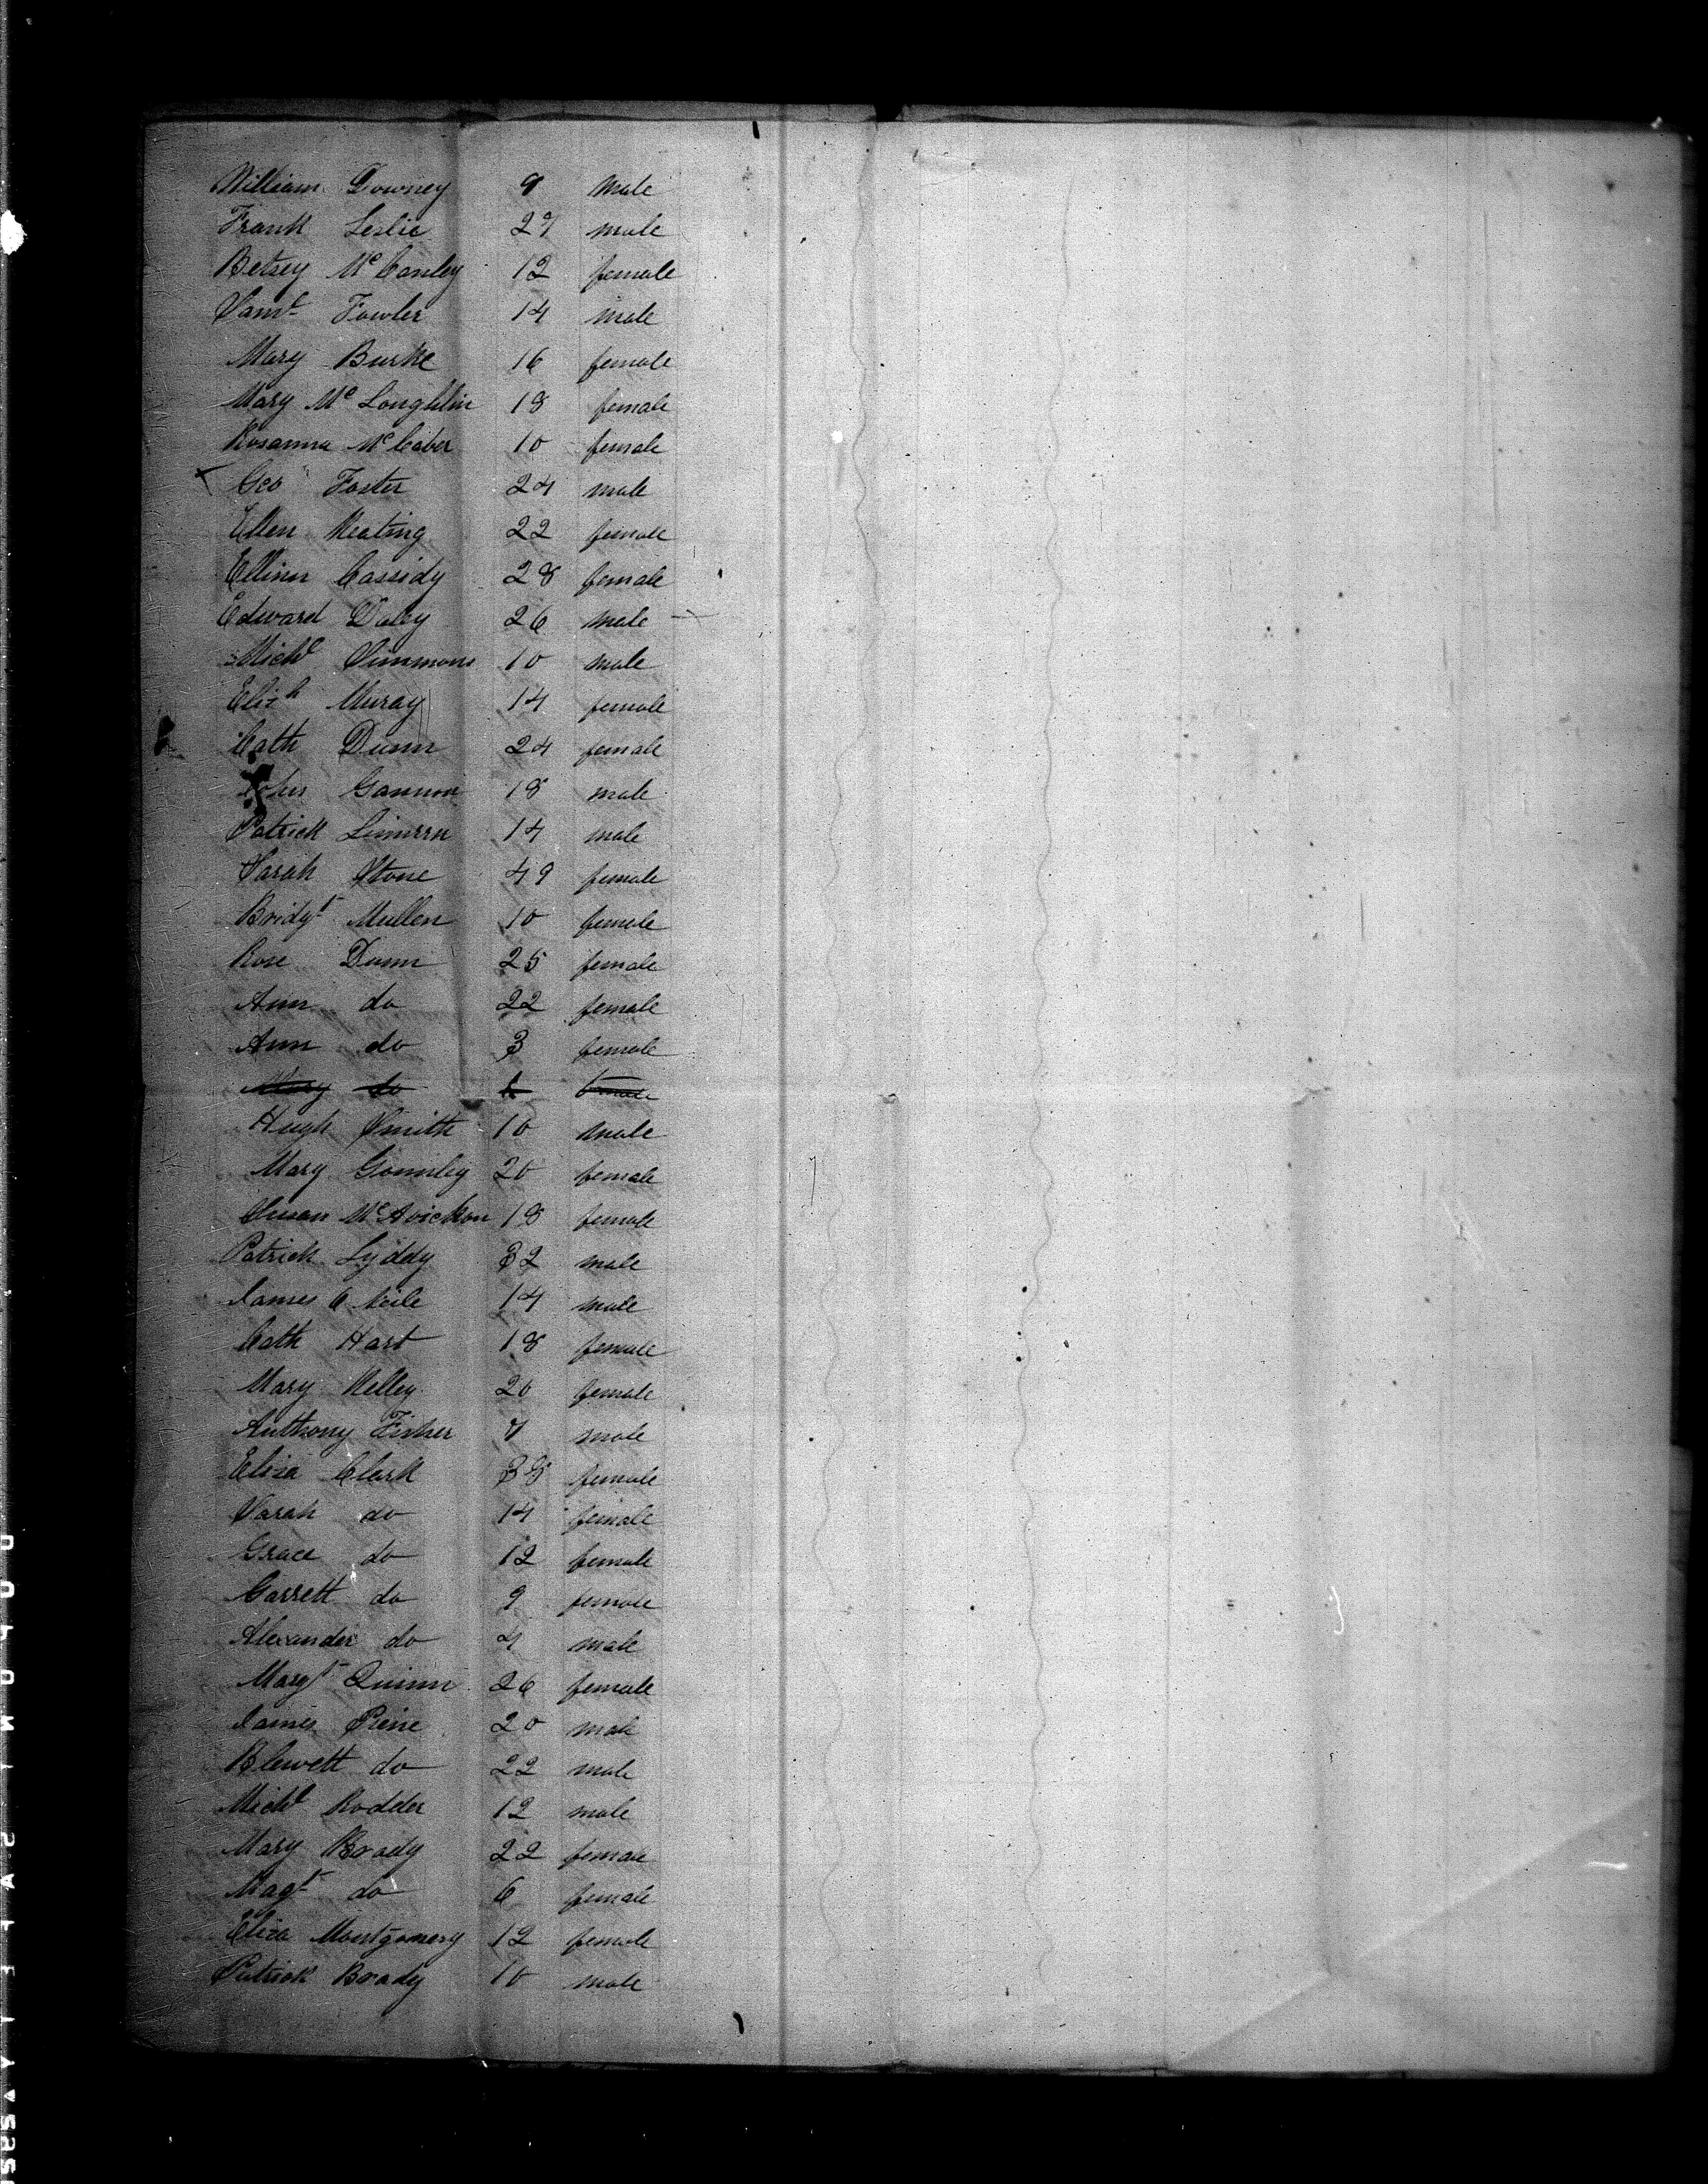 William Downey 9 male
Frank Leslie 27 male
Betsey McCanley 12 female
Saml Fowler 14 male
Mary Burke 16 female
Mary McLoughlin 18 female
Rosanna McCaber 10 female
Geo Foster 24 male
Ellen Keating 22 female
Ellinn Cassidy 28 female
Edward Daley 26 male
Michl Simmons 10 male
Elizh Muray 14 female
Cath Dunn 24 female
John Gannon 18 male
Patrick 14 male
Sarah Stone 49 female
Bridgt Mullen 10 female
Rose Dunn 25 female
Ann do 22 female
Ann do 3 female
Mary do female
Hugh Smith 10 male
Mary Gormley 20 female
Susan McAvickon 18 female
Patrick Lyddy 32 male
James O Neile 14 male
Cath Hart 18 female
Mary Kelley 20 female
Anthony Fisher 7 male
Eliza Clark 38 female
Sarah do 14 female
Grace do 12 female
Garrett do 9 female
Alexander do 4 male
Margt Quinn 26 female
James 20 male
Blewett do 22 male
Michl Rodder 12 male
Mary Brady 22 female
Magt do 6 female
Eliza Montgomery 12 female
Patrick Brady 10 male